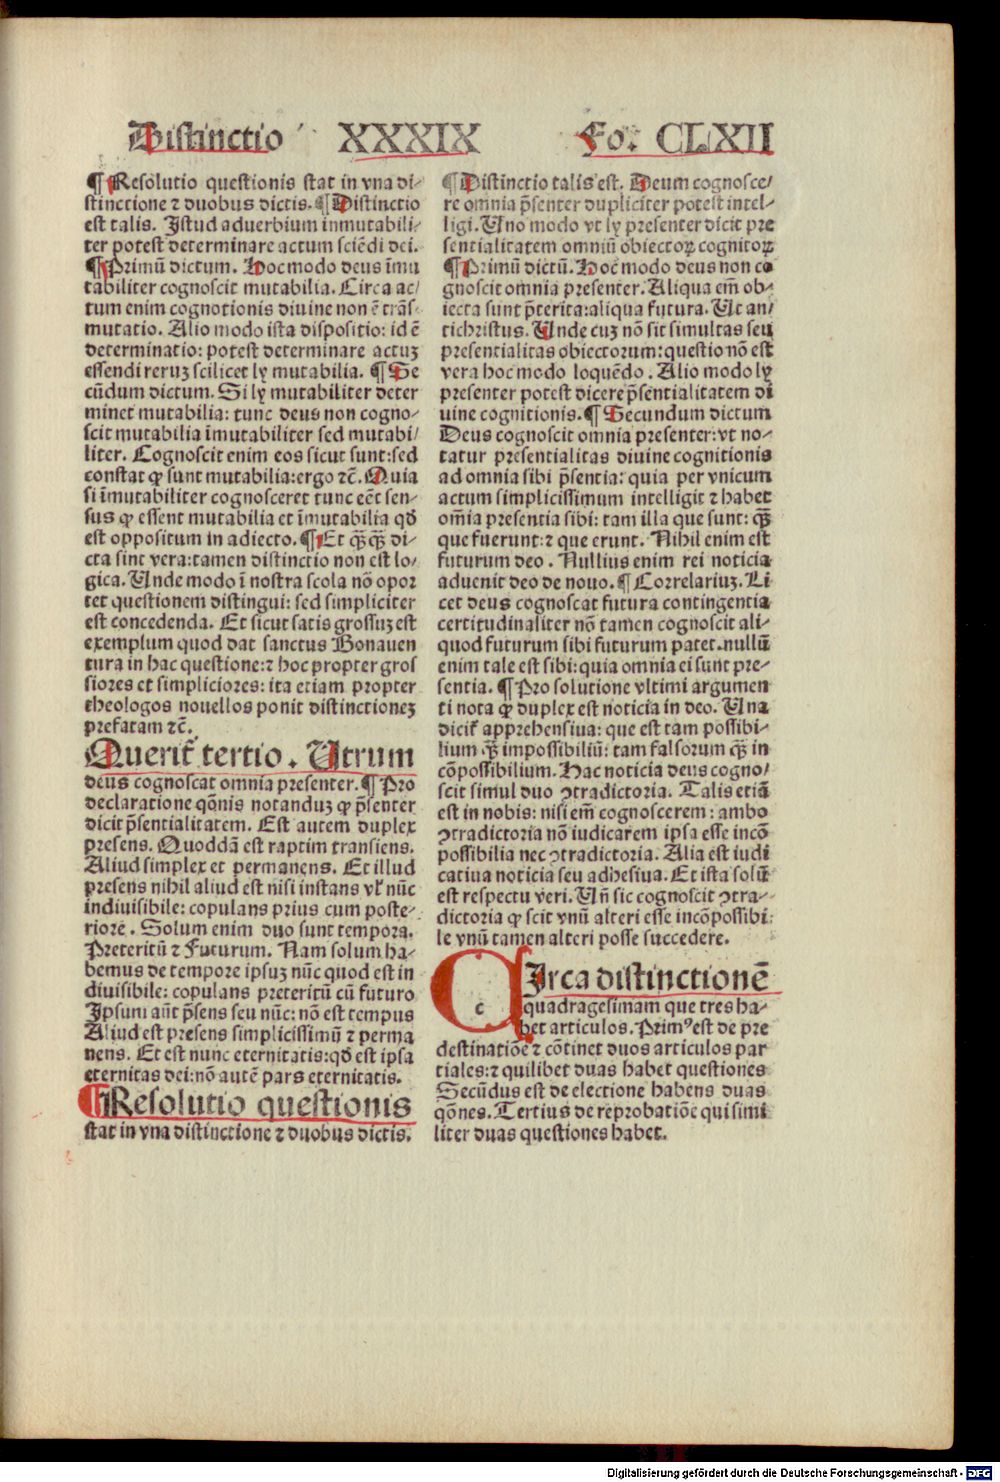 Distinctio XXXIX Fo. CLXII
¶ Resolutio questionis stat in vna di⸗
stinctione ⁊ duobus dictis. ¶ Distinctio
est talis. Istud aduerbium inmutabili⸗
ter potest determinare actum sciẽdi dei.
¶ Primũ dictum. Hoc modo deus ĩmu
tabiliter cognoscit mutabilia. Circa ac/
tum enim cognotionis diuine non ẽ trãs⸗
mutatio. Alio modo ista dispositio: id ẽ
determinatio: potest determinare actuȝ
essendi reruȝ scilicet ly mutabilia. ¶ Se
cũdum dictum. Si ly mutabiliter deter
minet mutabilia: tunc deus non cogno⸗
scit mutabilia ĩmutabiliter sed mutabi/
liter. Cognoscit enim eos sicut sunt: sed
constat ꝙ sunt mutabilia: ergo ⁊c̃. Quia
si ĩmutabiliter cognosceret tunc eẽt sen⸗
sus ꝙ essent mutabilia et ĩmutabilia qđ
est oppositum in adiecto. ¶ Et q̃ꝫ q̃ꝫ di⸗
cta sint vera: tamen distinctio non est lo⸗
gica. Unde modo ĩ nostra scola nõ opor
tet questionem distingui: sed simpliciter
est concedenda. Et sicut satis grossuȝ est
exemplum quod dat sanctus Bonauen
tura in hac questione: ⁊ hoc propter gros
siores et simpliciores: ita etiam propter
theologos nouellos ponit distinctioneȝ
prefatam ⁊c̃.
Querit̃ tertio. Utrum
deus cognoscat omnia presenter. ¶ Pro
declaratione qõnis notanduȝ ꝙ p̃senter
dicit p̃sentialitatem. Est autem duplex
presens. Quoddã est raptim transiens.
Aliud simplex et permanens. Et illud
presens nihil aliud est nisi instans vl̃ nũc
indiuisibile: copulans prius cum poste⸗
riorẽ. Solum enim duo sunt tempora.
Preteritũ ⁊ Futurum. Nam solum ha⸗
bemus de tempore ipsuȝ nũc quod est in
diuisibile: copulans preteritũ cũ futuro
Ipsum aũt p̃sens seu nũc: nõ est tempus
Aliud est presens simplicissimũ ⁊ perma
nens. Et est nunc eternitatis: qđ est ipsa
eternitas dei: nõ autẽ pars eternitatis.
¶ Resolutio questionis
stat in vna distinctione ⁊ duobus dictis.
¶ Distinctio talis est. Deum cognosce/
re omnia p̃senter dupliciter potest intel⸗
ligi. Uno modo vt ly presenter dicit pre
sentialitatem omniũ obiectoꝝ cognitoꝝ
¶ Primũ dictũ. Hoc modo deus non co
gnoscit omnia presenter. Aliqua em̃ ob⸗
iecta sunt p̃terita: aliqua futura. Ut an/
tichristus. Unde cuȝ nõ sit simultas seu
presentialitas obiectorum: questio nõ est
vera hoc modo loquẽdo. Alio modo ly
presenter potest dicere p̃sentialitatem di
uine cognitionis. ¶ Secundum dictum
Deus cognoscit omnia presenter: vt no⸗
tatur presentialitas diuine cognitionis
ad omnia sibi p̃sentia: quia per vnicum
actum simplicissimum intelligit ⁊ habet
om̃ia presentia sibi: tam illa que sunt: q̃ꝫ
que fuerunt: ⁊ que erunt. Nihil enim est
futurum deo. Nullius enim rei noticia
aduenit deo de nouo. ¶ Correlariuȝ. Li
cet deus cognoscat futura contingentia
certitudinaliter nõ tamen cognoscit ali⸗
quod futurum sibi futurum patet. nullũ
enim tale est sibi: quia omnia ei sunt pre⸗
sentia. ¶ Pro solutione vltimi argumen
ti nota ꝙ duplex est noticia in deo. Una
dicit̃ apprehensiua: que est tam possibi⸗
lium q̃ꝫ impossibiliũ: tam falsorum q̃ꝫ in
cõpossibilium. Hac noticia deus cogno/
scit simul duo ꝯtradictoria. Talis etiã
est in nobis: nisi em̃ cognoscerem: ambo
ꝯtradictoria nõ iudicarem ipsa esse incõ
possibilia nec ꝯtradictoria. Alia est iudi
catiua noticia seu adhesiua. Et ista solũ
est respectu veri. Uñ sic cognoscit ꝯtra⸗
dictoria ꝙ scit vnũ alteri esse incõpossibi:
le vnũ tamen alteri posse succedere.
CIrca distinctionẽ
c quadragesimam que tres ha⸗
bet articulos. Primꝰ est de pre
destinatiõe ⁊ cõtinet duos articulos par
tiales: ⁊ quilibet duas habet questiones
Secũdus est de electione habens duas
qõnes. Tertius de reprobatiõe qui simi
liter duas questiones habet.
Digitalisierung gefördert durch die Deutsche Forschungsgemeinschaft - DFG